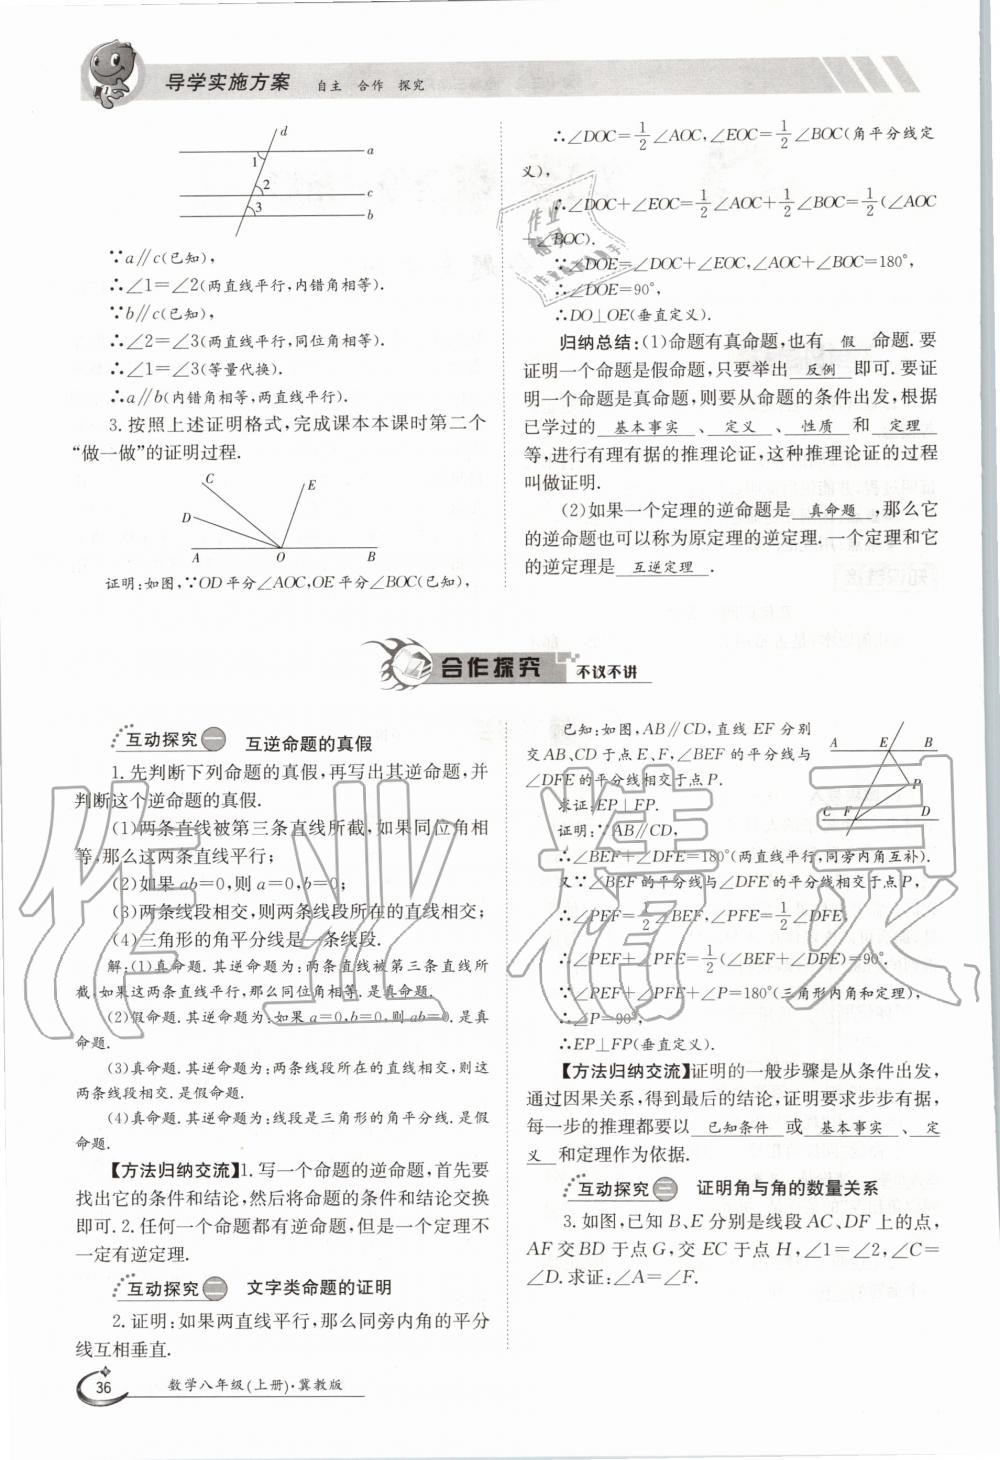 导学实施方案 自主 合作 探究
d
a
1
2
c
3
b
∵a∥c(已知),
∴∠1=∠2(两直线平行,内错角相等).
∵b∥c(已知),
∴∠2=∠3(两直线平行,同位角相等).
∴∠1=∠3(等量代换).
∴a∥b(内错角相等,两直线平行).
3.按照上述证明格式,完成课本本课时第二个
“做一做”的证明过程.
C
E
D
A O B
证明:如图,∵OD平分∠AOC,OE平分∠BOC(已知),
∴∠DOC=1/2∠AOC,∠EOC=1/2∠BOC(角平分线定
义),
∴∠DOC+∠EOC=1/2∠AOC+1/2∠BOC=1/2(∠AOC
+∠BOC).
∵∠DOE=∠DOC+∠EOC,∠AOC+∠BOC=180°,
∴∠DOE=90°,
∴DO⊥OE(垂直定义).
归纳总结:(1)命题有真命题,也有 假 命题.要
证明一个命题是假命题,只要举出 反例 即可.要证
明一个命题是真命题,则要从命题的条件出发,根据
已学过的 基本事实 、 定义 、 性质 和 定理
等,进行有理有据的推理论证,这种推理论证的过程
叫做证明.
(2)如果一个定理的逆命题是 真命题 ,那么它
的逆命题也可以称为原定理的逆定理.一个定理和它
的逆定理是 互逆定理 .
合作探究 不议不讲
互动探究一 互逆命题的真假
1.先判断下列命题的真假,再写出其逆命题,并
判断这个逆命题的真假.
(1)两条直线被第三条直线所截,如果同位角相
等,那么这两条直线平行;
(2)如果ab=0,则a=0,b=0;
(3)两条线段相交,则两条线段所在的直线相交;
(4)三角形的角平分线是一条线段.
解:(1)真命题.其逆命题为:两条直线被第三条直线所
截,如果这两条直线平行,那么同位角相等.是真命题.
(2)假命题.其逆命题为:如果a=0,b=0,则ab=0.是真
命题.
(3)真命题.其逆命题为:两条线段所在的直线相交,则这
两条线段相交.是假命题.
(4)真命题.其逆命题为:线段是三角形的角平分线.是假
命题.
【方法归纳交流】1.写一个命题的逆命题,首先要
找出它的条件和结论,然后将命题的条件和结论交换
即可.2.任何一个命题都有逆命题,但是一个定理不
一定有逆定理.
互动探究二 文字类命题的证明
2.证明:如果两直线平行,那么同旁内角的平分
线互相垂直.
已知:如图,AB∥CD,直线EF分别
交AB、CD于点E、F,∠BEF的平分线与
∠DFE的平分线相交于点P.
求证:EP⊥FP.
A E B
P
C F D
证明:∵AB∥CD,
∴∠BEF+∠DFE=180°(两直线平行,同旁内角互补).
又∵∠BEF的平分线与∠DFE的平分线相交于点P,
∴∠PEF=1/2∠BEF,∠PFE=1/2∠DFE,
∴∠PEF+∠PFE=1/2(∠BEF+∠DFE)=90°.
∵∠PEF+∠PFE+∠P=180°(三角形内角和定理),
∴∠P=90°,
∴EP⊥FP(垂直定义).
【方法归纳交流】证明的一般步骤是从条件出发,
通过因果关系,得到最后的结论,证明要求步步有据,
每一步的推理都要以 已知条件 或 基本事实 、 定
义 和定理作为依据.
互动探究三 证明角与角的数量关系
3.如图,已知B、E分别是线段AC、DF上的点,
AF交BD于点G,交EC于点H,∠1=∠2,∠C=
∠D.求证:∠A=∠F.
36 数学八年级(上册)·冀教版
作业精灵